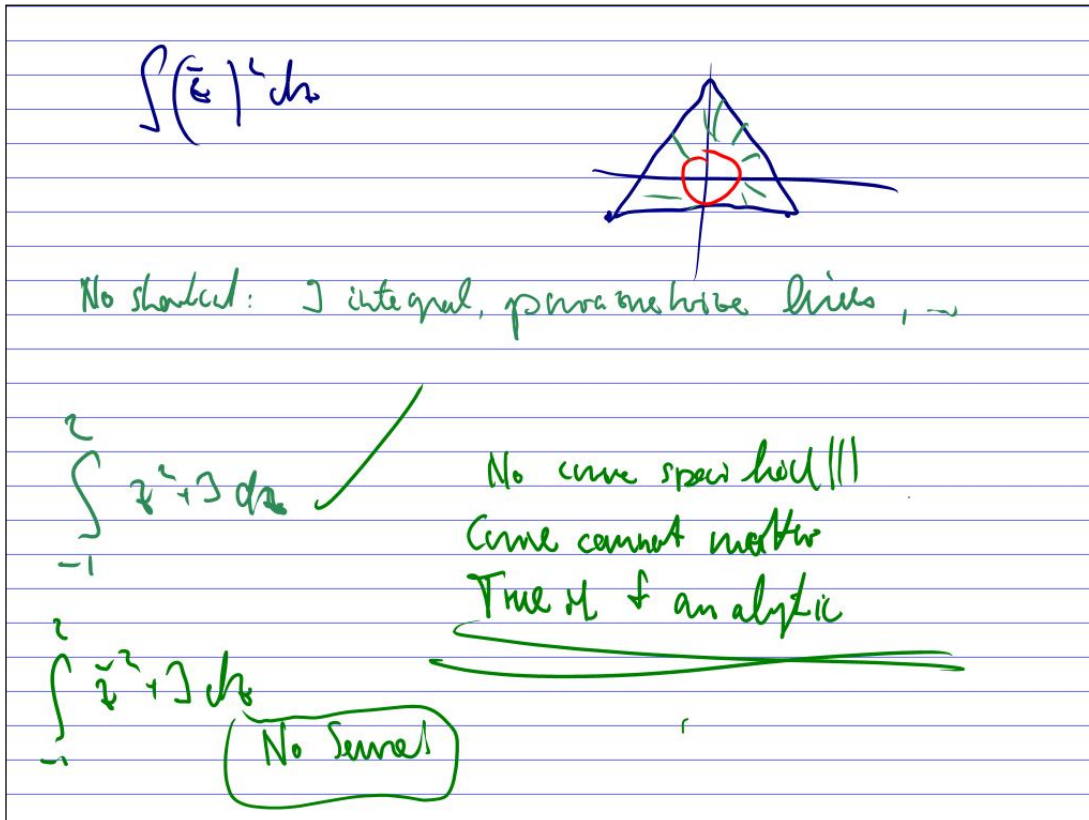 ∫(z̄)² dz
No shortcut: 3 integral, parametrize lines, ...
∫₋₁² z²+3 dz ✓
No curve specified!!!
Curve cannot matter
True if f analytic
∫₋₁² z̄²+3 dz
No sense!